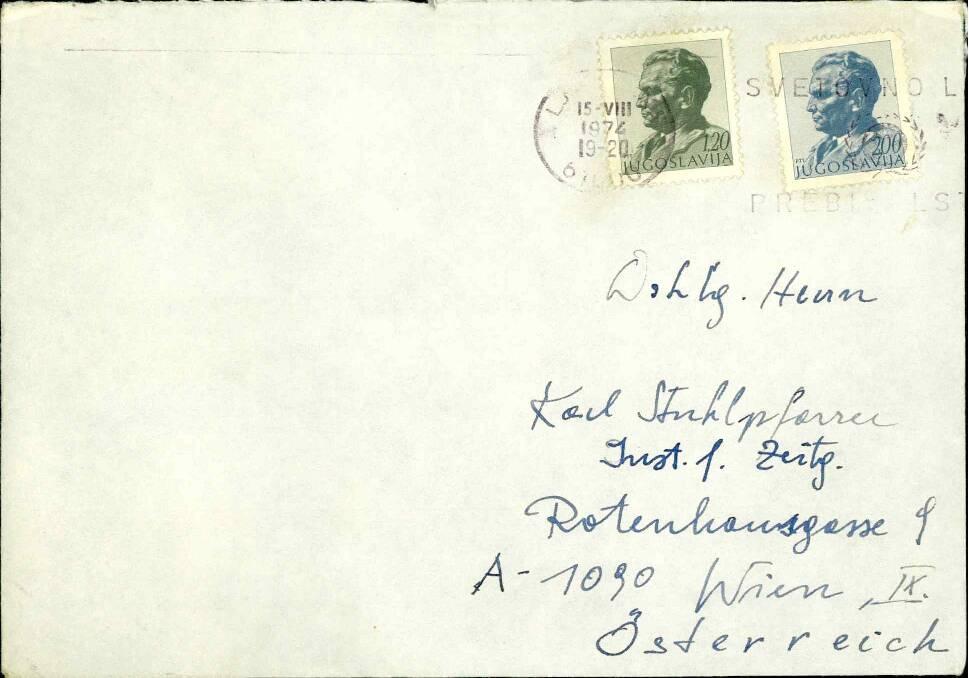 15-VIII
1974
19-20
1.20
JUGOSLAVIJA
PTT
2.00
JUGOSLAVIJA
SVETOVNO L
Herrn
Karl Stuhlpfarrer
Inst. f. Zeitg.
Rotenhausgasse 9
A-1090 Wien, IX.
Österreich